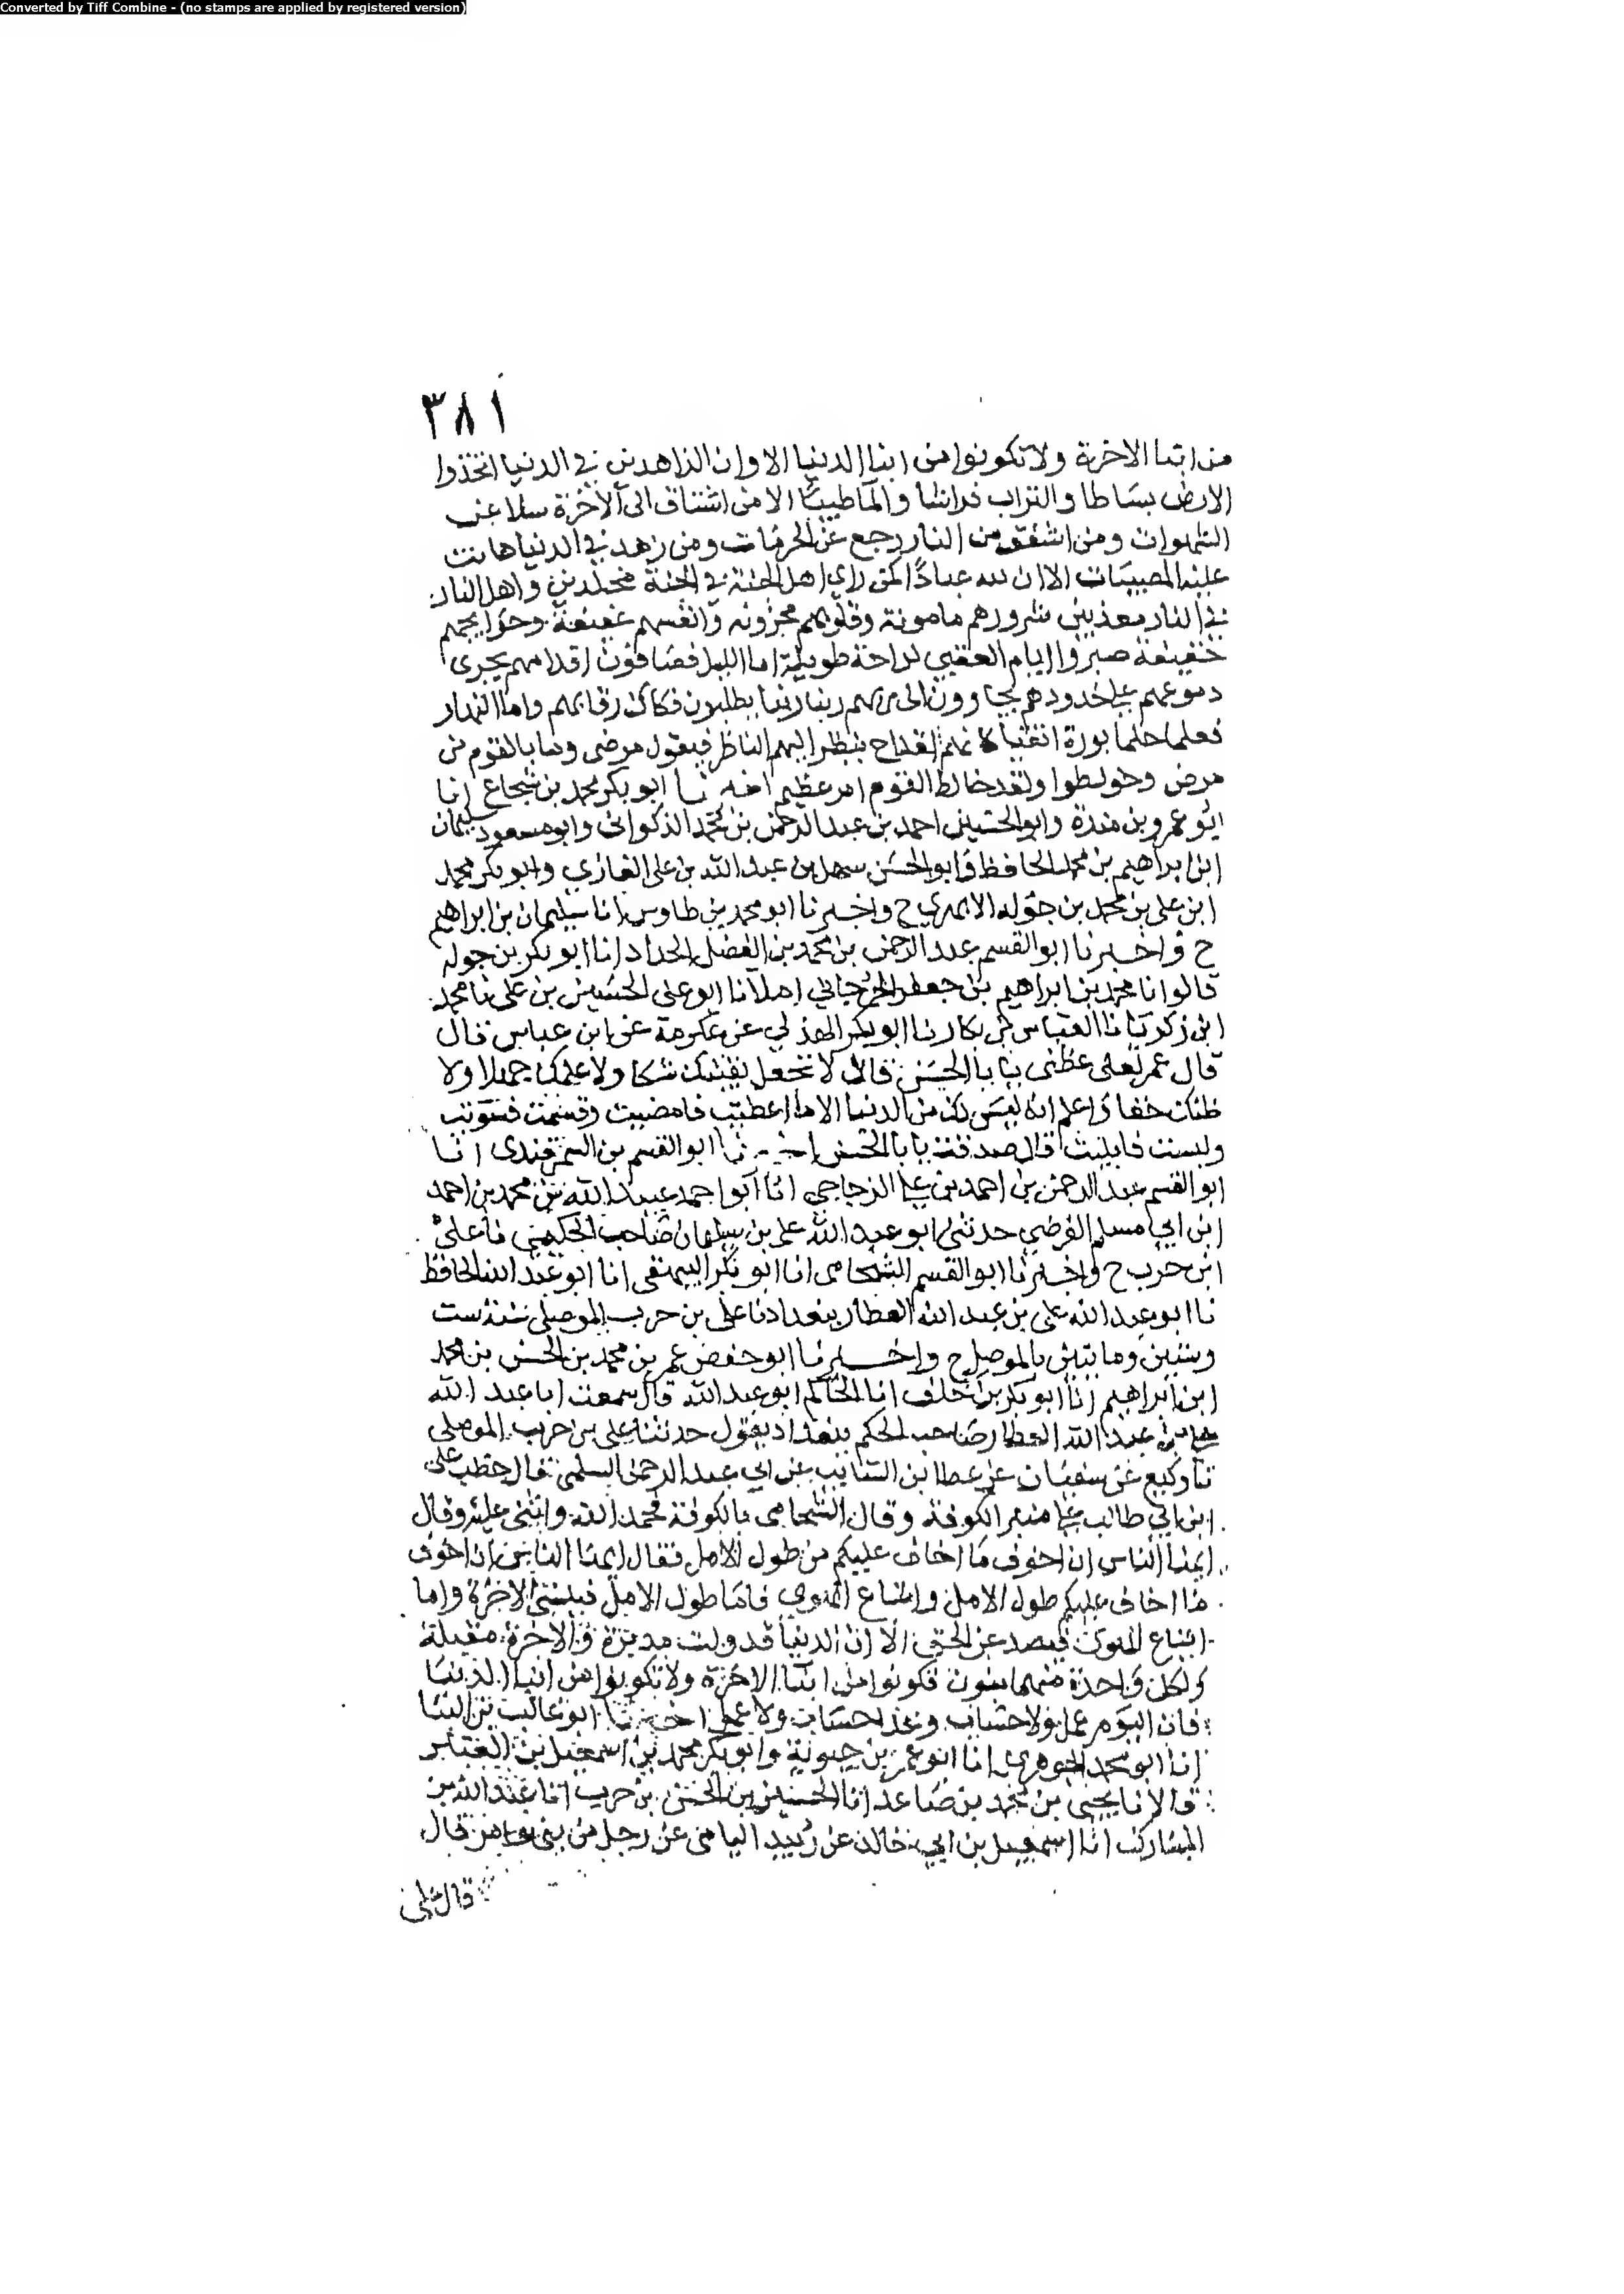 Converted by Tiff Combine - (no stamps are applied by registered version)
٣٨١
من ابنا الاخرة ولا تكونوا من ابنا الدنيا الا وان الزاهدين في الدنيا اتخذوا
الارض بساطا والتراب فراشا والما طيبا الا من اشتاق الى الاخرة سلا عن
الشهوات ومن اشفق من النار رجع عن الحرمات ومن زهد في الدنيا هانت
عليه المصيبات الا ان لله عبادا كمن راي اهل الجنة في الجنة مخلدين واهل النار
في النار معذبين شرورهم مامونة وقلوبهم محزونه وانفسهم عفيفة وحوايجهم
خفيفة صبروا ايام العقبي لراحة طويلة اما الليل فصافون اقدامهم يجرى
دموعهم على خدودهم يجاورون الى ربهم ربنا ربنا يطلبون فكاك رقابهم واما النهار
فعلما حلما بررة اتقيا كانهم القداح ينظر اليهم الناظر فيقول مرضى وما بالقوم من
مرض وخولطوا ولقد خالط القوم امر عظيم اخبرنا ابو بكر محمد بن شجاع انا
ابو عمرو بن مندة وابو الحسين احمد بن عبد الرحمن بن محمد الذكوانى وابو مسعود سليمان
ابن ابراهيم بن محمد الحافظ وابو الحسن سهل بن عبد الله بن على الغازي وابو بكر محمد
ابن على بن محمد بن جوله الابهري ح واخبرنا ابو محمد بن طاوس انا سليمان بن ابراهيم
ح واخبرنا ابو القسم عبد الرحمن بن محمد بن الفضل الحداد انا ابو بكر بن جوله
قالوا نا محمد بن ابراهيم بن جعفر الجرجاني املا نا ابو على الحسين بن على نا محمد
ابن زكريا نا العباس بن بكار نا ابو بكر الهذلي عن عكرمة عن ابن عباس قال
قال عمر لعلى عظنى يا با الحسن قال لا تجعل يقينك شكا ولا علمك جهلا ولا
ظنك حقا واعلم انه ليس لك من الدنيا الا ما اعطيت فامضيت وقسمت فسويت
ولبست فابليت قال صدقت يا با الحسن اخبرنا ابو القسم بن السمرقندى انا
ابو القسم عبد الرحمن بن احمد بن على الزجاجي انا ابو احمد عبيد الله بن محمد بن احمد
ابن ابي مسلم الفرضي حدثنى ابو عبد الله على بن سليمان صاحب الحكيمي نا على
ابن حرب ح واخبرنا ابو القسم الشحامى انا ابو بكر البيهقى انا ابو عبد الله الحافظ
نا ابو عبد الله على بن عبد الله العطار ببغداد نا على بن حرب الموصلى سنة ست
وستين وماتين بالموصل ح واخبرنا ابو حفص عمر بن محمد بن الحسن بن محمد
ابن ابراهيم انا ابو بكر بن خلف انا الحاكم ابو عبد الله قال سمعت ابا عبد الله
على بن عبد الله العطار صاحب الحكم ببغداد يقول حدثنا على بن حرب الموصلى
نا وكيع عن سفيان عن عطا ابن السايب عن ابي عبد الرحمن السلمى قال خطب على
ابن ابي طالب على منبر الكوفة وقال الشحامى بالكوفة فحمد الله واثنى عليه وقال
ايها الناس ان اخوف ما اخاف عليكم من طول الامل فقال ايها الناس ان اخوف
ما اخاف عليكم طول الامل واتباع الهوي فاما طول الامل فينسى الاخرة واما
اتباع الهوى فيصد عن الحق الا ان الدنيا قد ولت مدبرة والاخرة مقبلة
ولكل واحدة منهما بنون فكونوا من ابنا الاخرة ولا تكونوا من ابنا الدنيا
فان اليوم عمل ولا حساب وغدا حساب ولا عمل اخبرنا ابو غالب بن البنا
انا ابو محمد الجوهرى انا ابو عمر بن حيوية وابو بكر محمد بن اسمعيل بن العباس
قالا نا يحيى بن محمد بن صاعد انا الحسين بن الحسن بن حرب انا عبد الله بن
المبارك انا اسمعيل بن ابي خالد عن زبيد اليامى عن رجل من بنى عامر قال
قال على